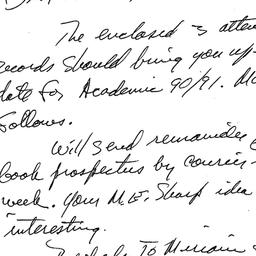 The enclosed
records should bring you up-
date for Academic 90/91.
follows.
Will send remainder
book prospectus by courier
week. Your M.E. Sharp idea
interesting.
To Miriam